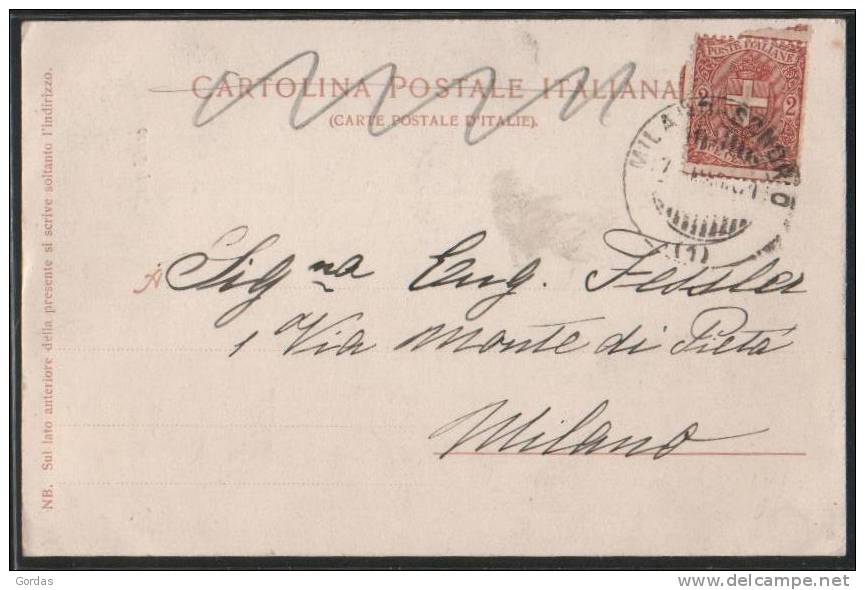 CARTOLINA POSTALE ITALIANA
(CARTE POSTALE D'ITALIE).
POSTE ITALIANE
2 2
MILANO SONDRIO
(1)
A Signa Eug. Fessler
1 Via Monte di Pietá
Milano
NB. Sul lato anteriore della presente si scrive soltanto l'indirizzo.
Gordas
delcampe.net